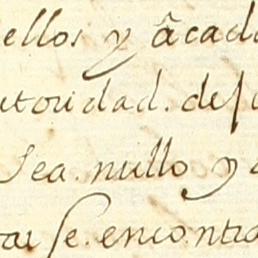 ellos y â cada
utoridad. de
Sea. nullo y
se. enco.ntra